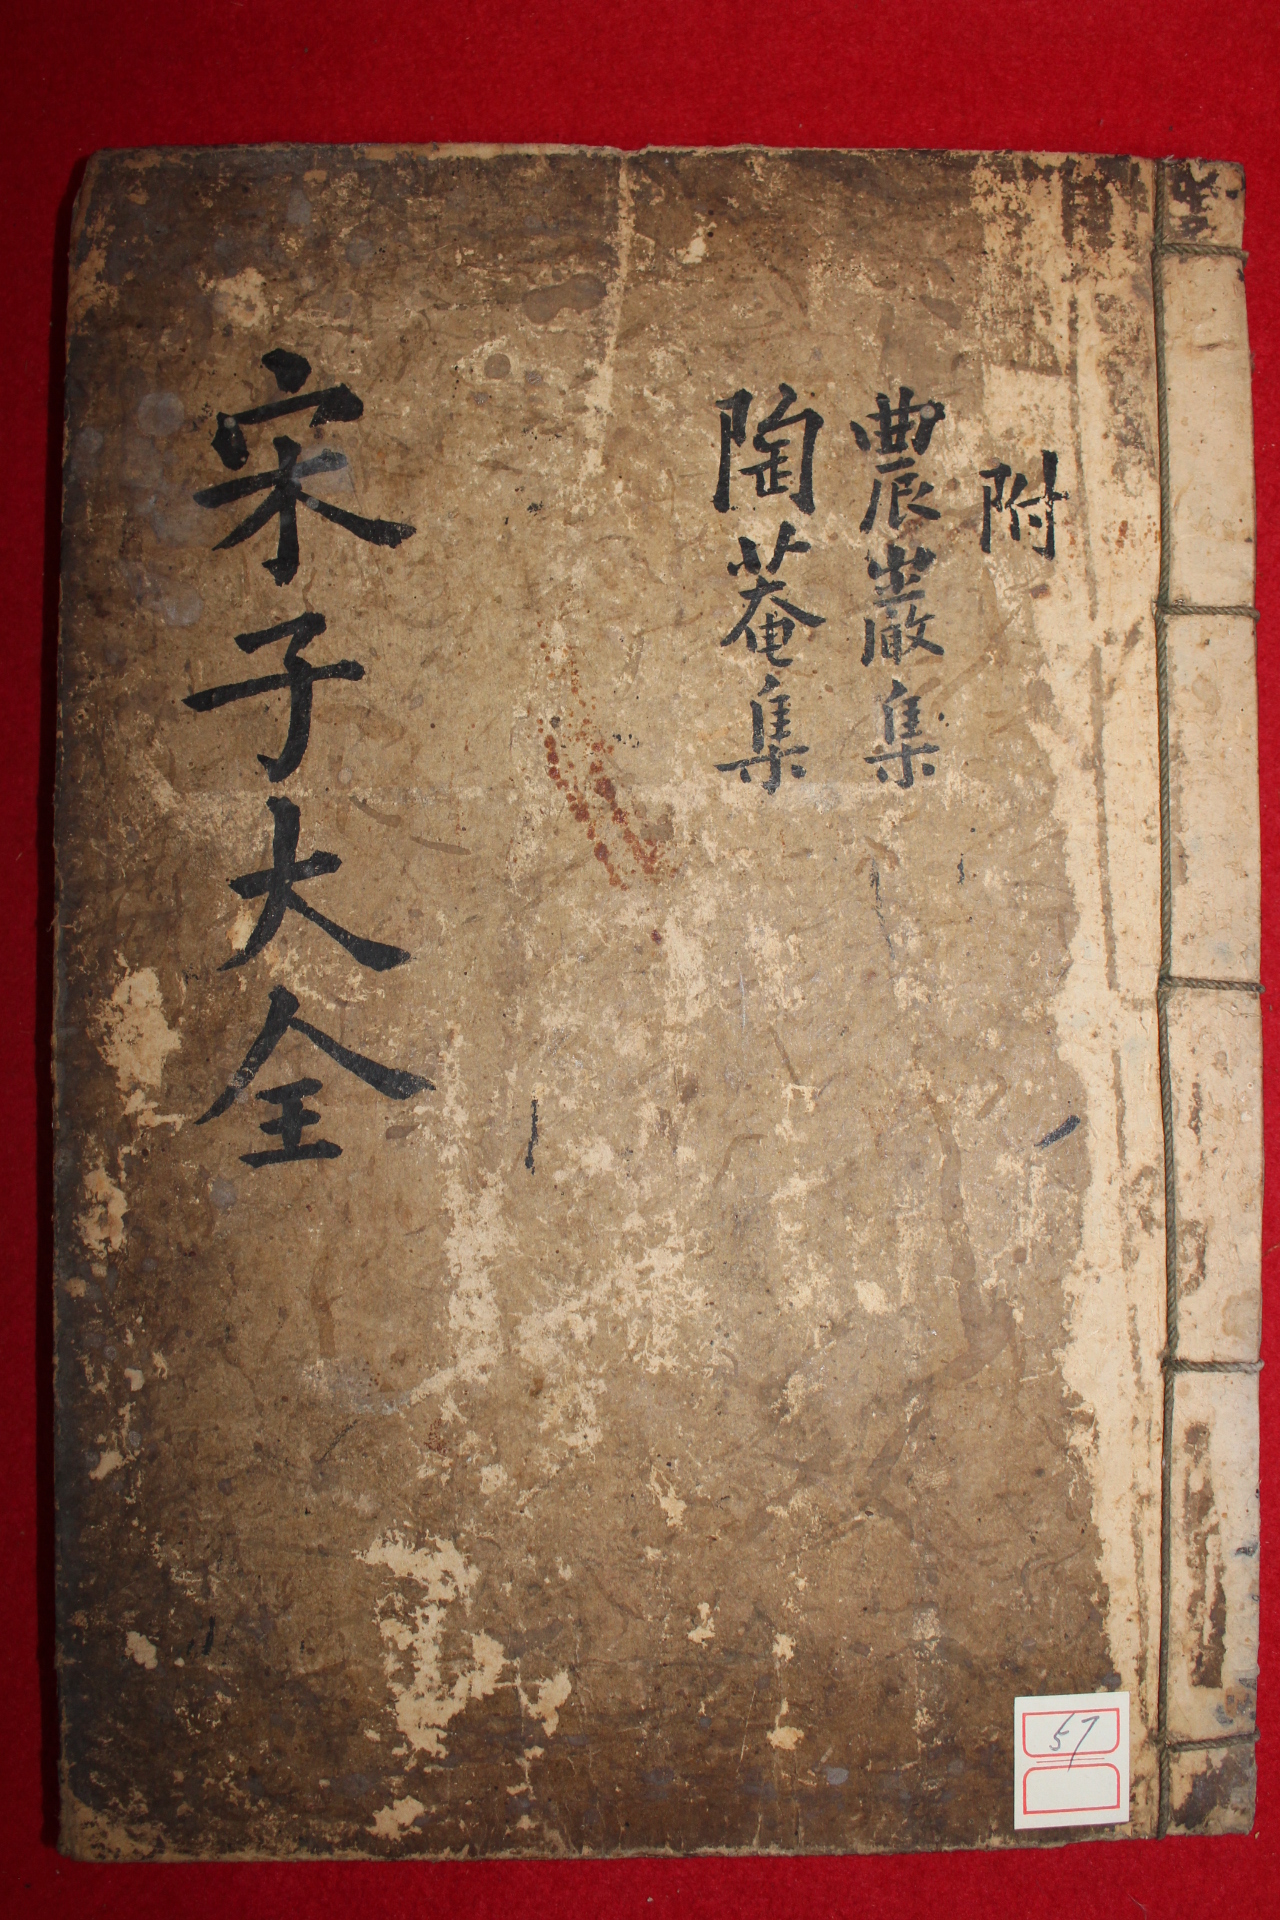 附
農巖集
陶菴集
宋子大全
57